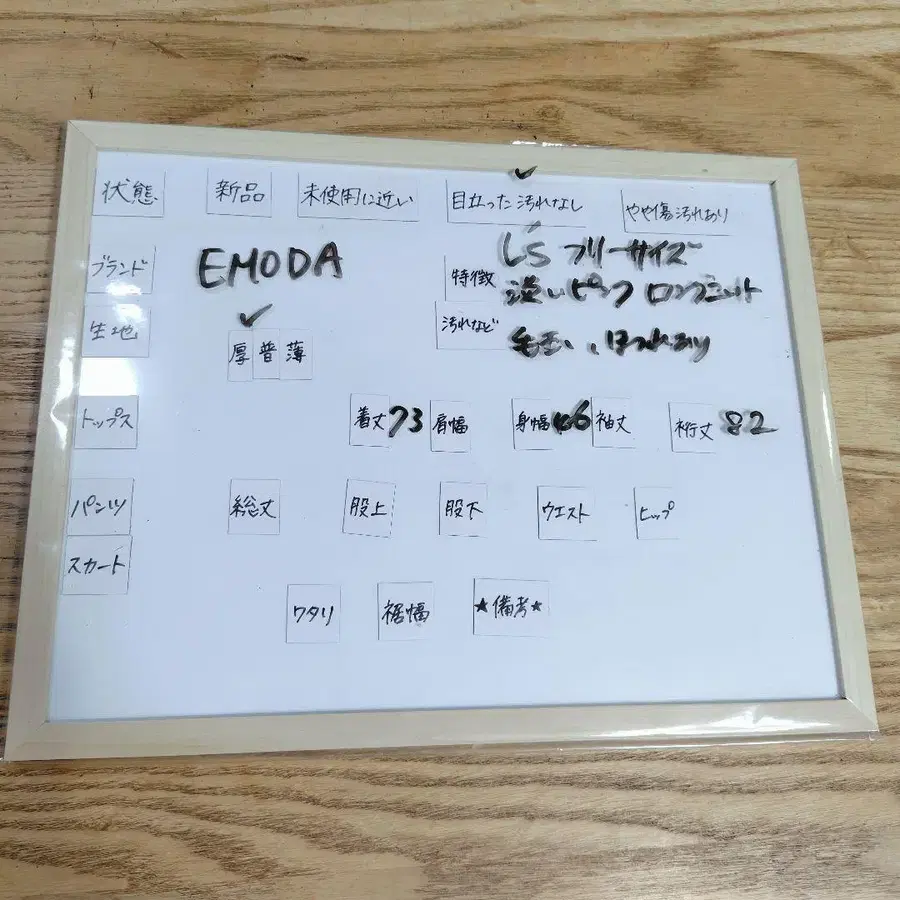 ✓
状態 新品 未使用に近い 目立った汚れなし やや傷汚れあり
ブランド EMODA 特徴 L'S フリーサイズ
淡いピンク ロングニット
✓
生地 厚 普 薄 汚れなど 毛玉、ほつれあり
トップス 着丈 73 肩幅 身幅 46 袖丈 裄丈 82
パンツ 総丈 股上 股下 ウエスト ヒップ
スカート
ワタリ 裾幅 ★備考★